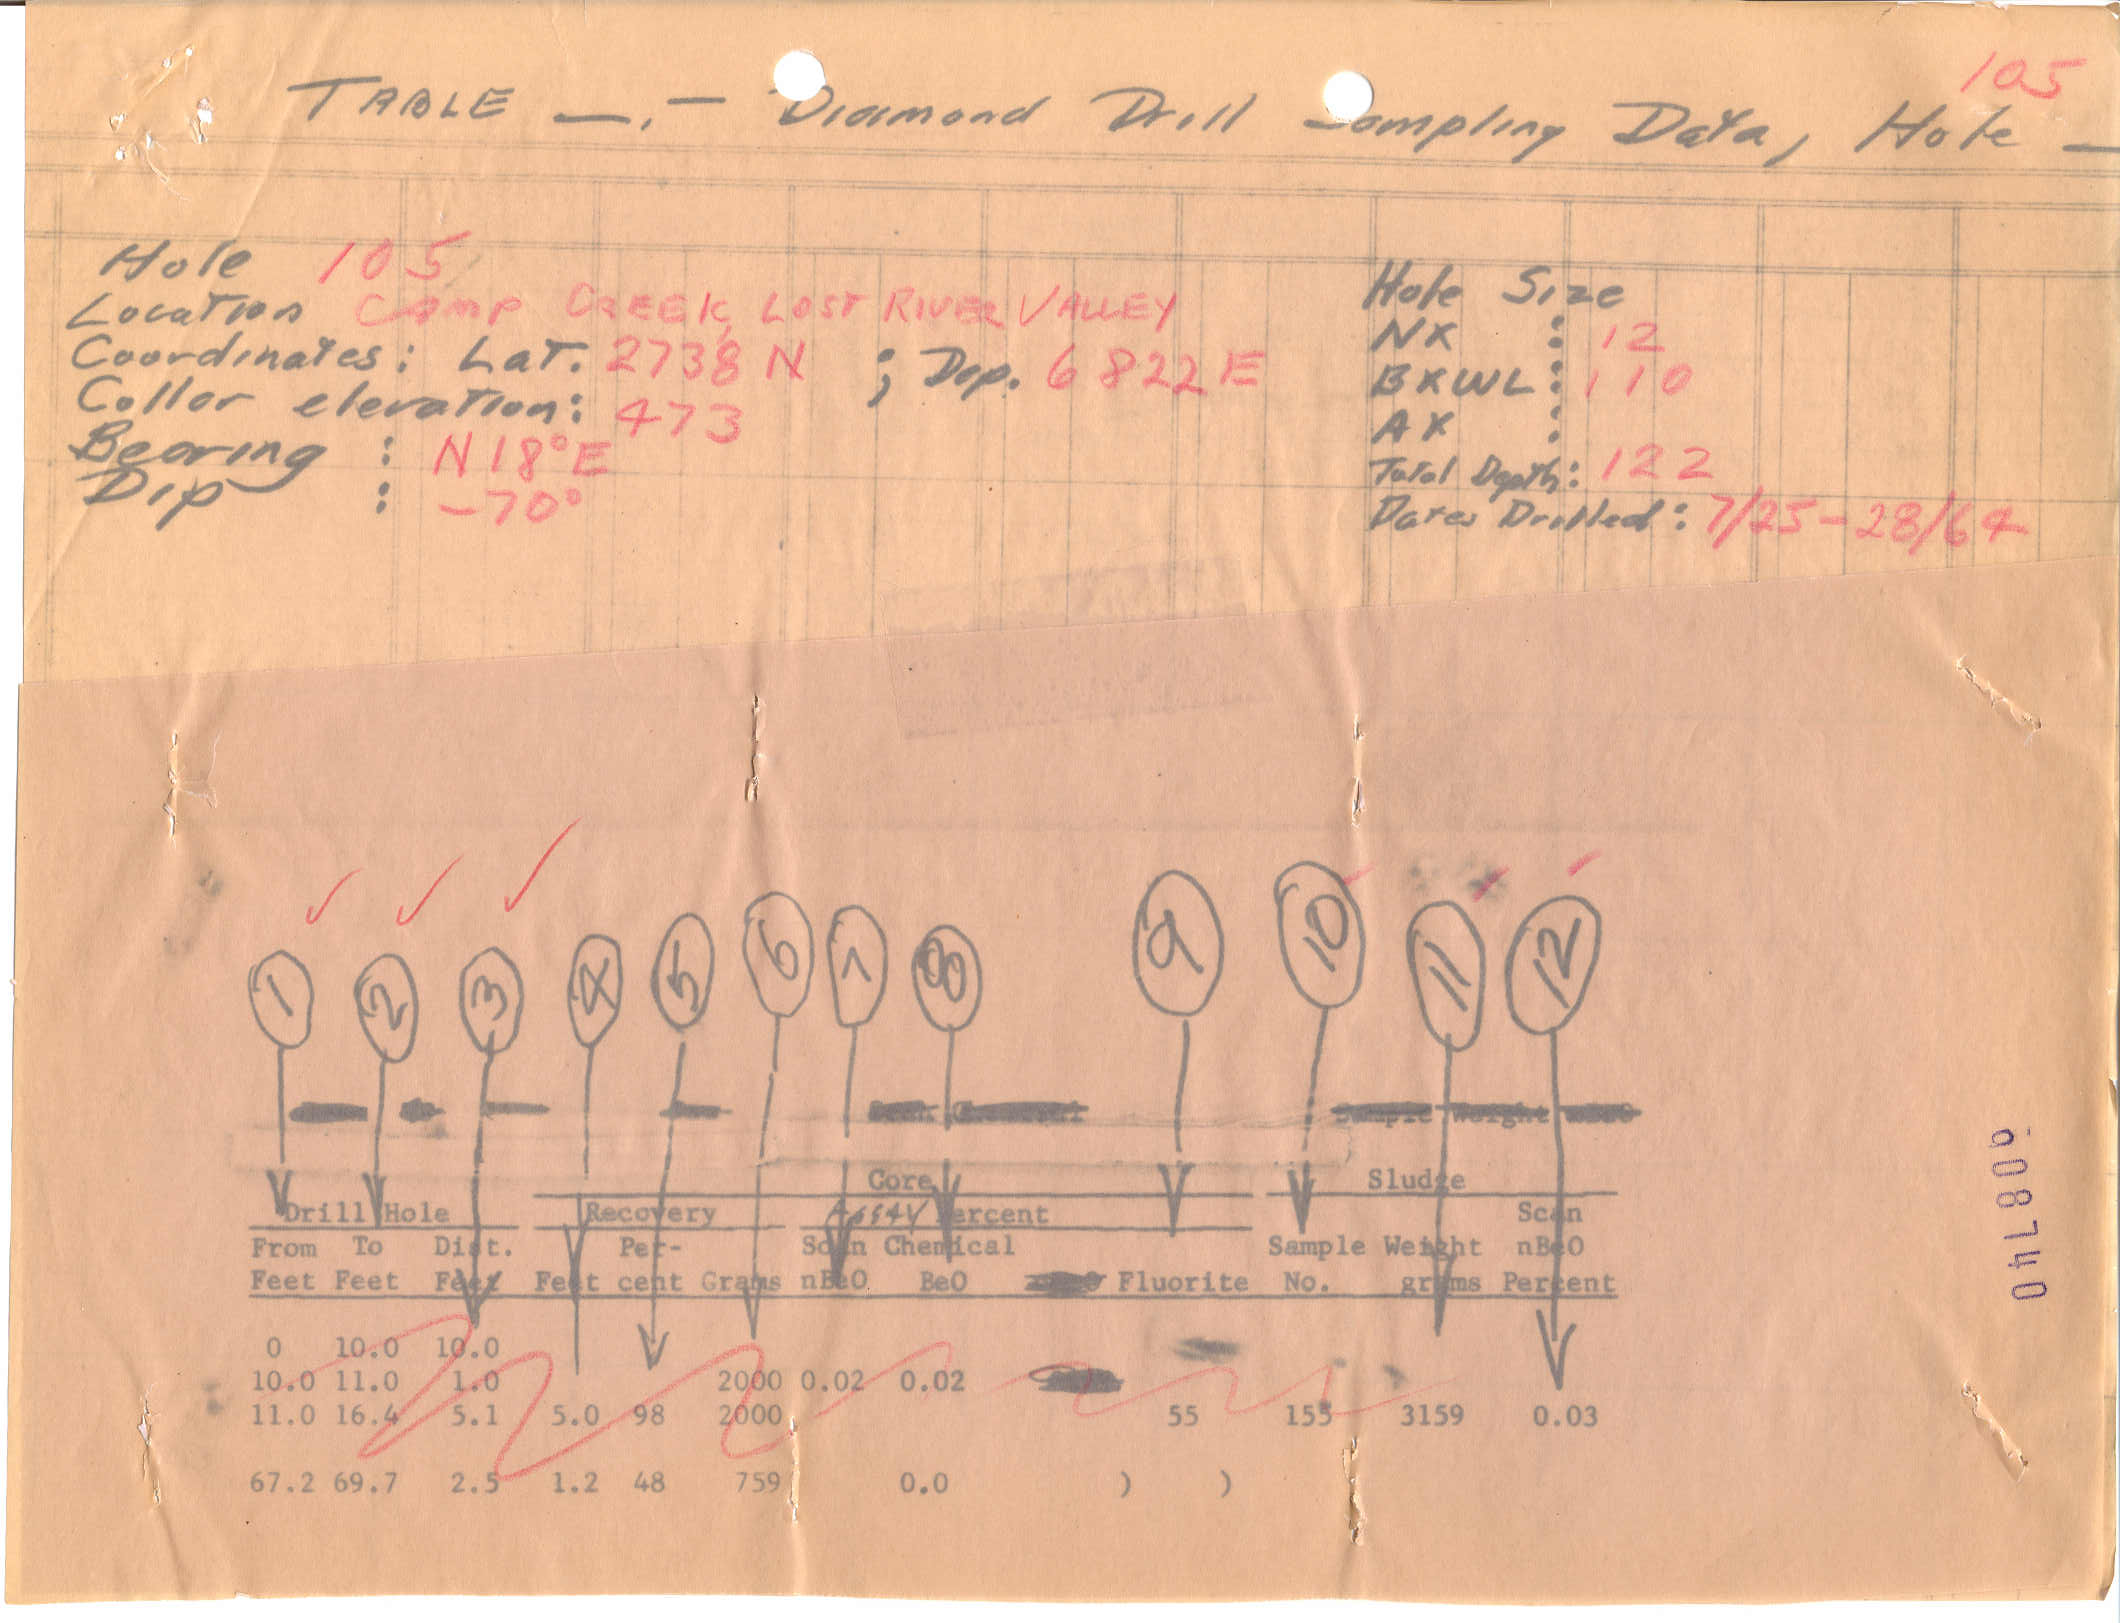 105
TABLE —.— Diamond Drill Sampling Data, Hole —
Hole 105
Location Camp CREEK, LOST RIVER VALLEY
Coordinates: Lat. 2738 N ; Dep. 6822 E
Collar elevation: 473
Bearing : N 18° E
Dip : -70°
Hole Size
NX : 12
BXWL: 110
AX :
Total Depth: 122
Dates Drilled: 7/25-28/64
1 2 3 4 5 6 7 8 9 10 11 12
Sample Weight nBeO
Core Sludge
Drill Hole Recovery Assay Percent Scan
From To Dist. Per- Scan Chemical Sample Weight nBeO
Feet Feet Feet Feet cent Grams nBeO BeO Fluorite No. grams Percent
0 10.0 10.0
10.0 11.0 1.0 2000 0.02 0.02
11.0 16.4 5.1 5.0 98 2000 55 155 3159 0.03
67.2 69.7 2.5 1.2 48 759 0.0 ) )